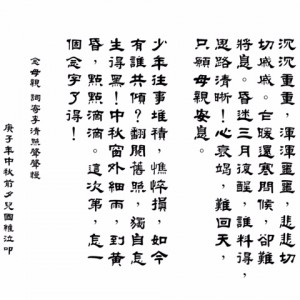 沉沉重重，渾渾噩噩，悲悲切
切戚戚。乍暖還寒問候，卻難
將息。昏迷三月夜醒，誰料得，
思路清晰！心衰竭，難回天，
只願母親安息。
少年往事堆積，憔悴損，如今
有誰共傾？翻閱舊照，獨自怎
生得黑！中秋窗外細雨，到黃
昏，點點滴滴。這次第，怎一
個念字了得！
念母親 詞寄李清照聲聲慢
庚子年中秋前夕兒國泣叩